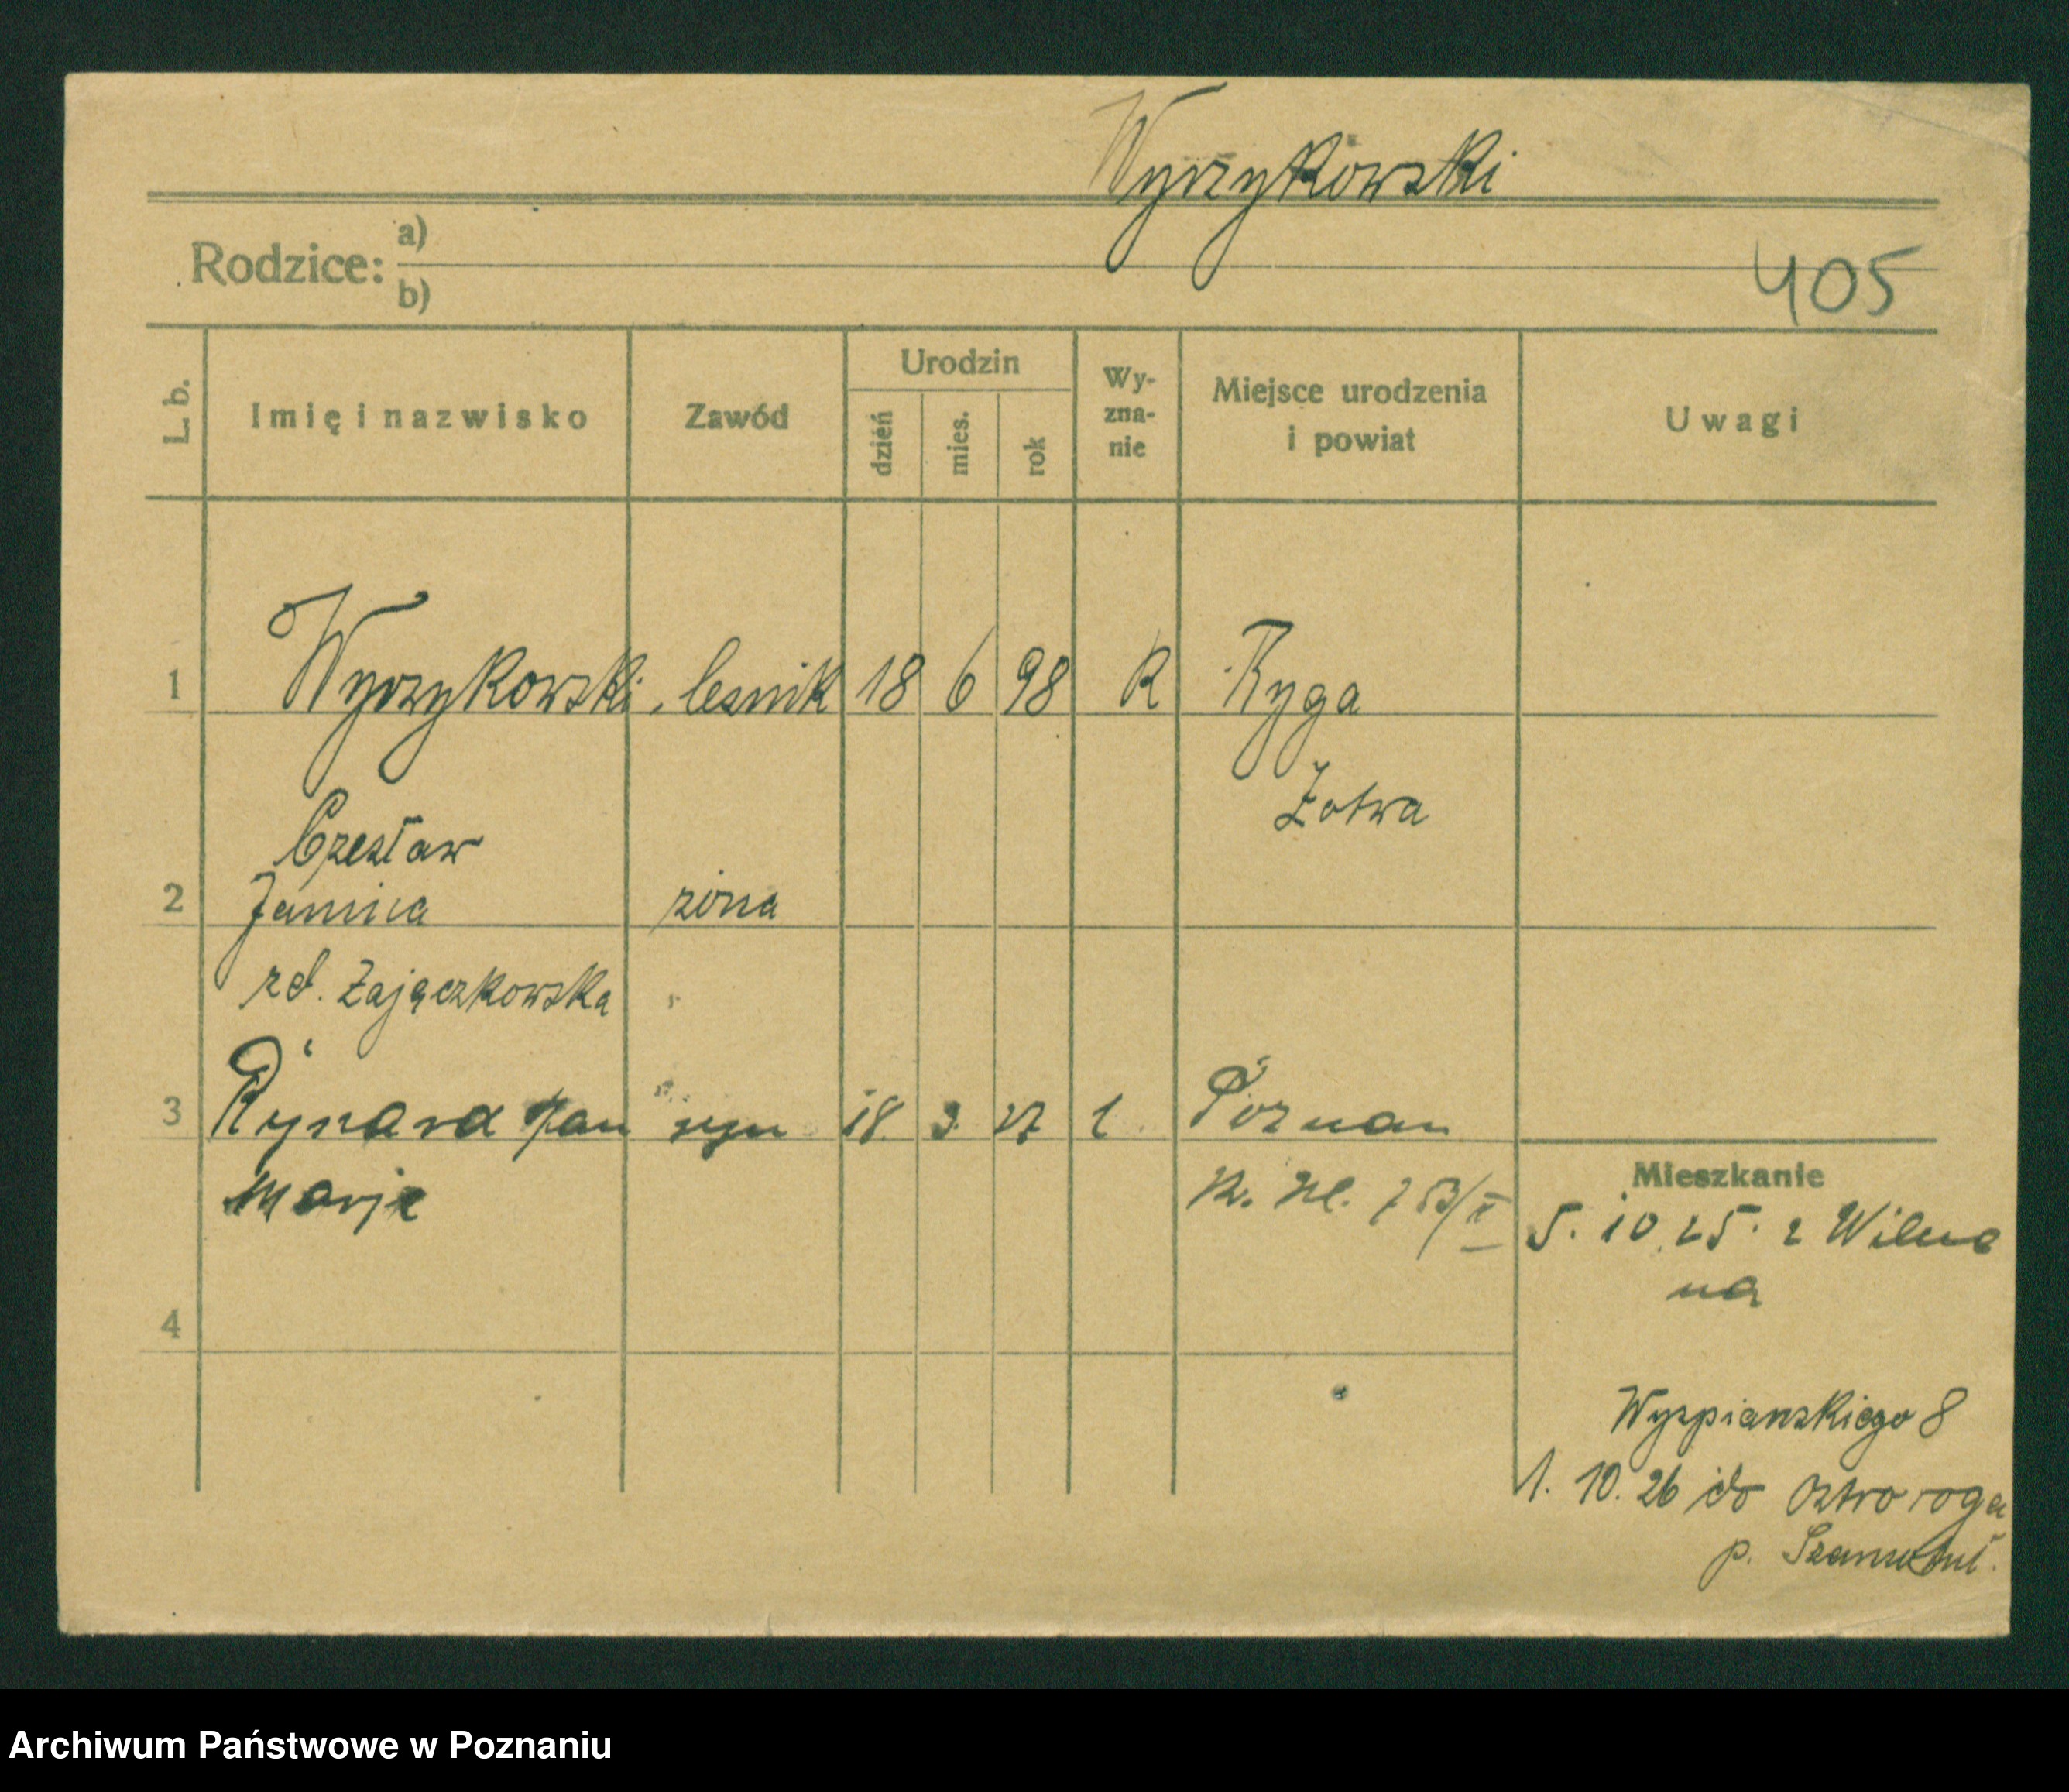 Wyrzykowski
Rodzice: a)
b)
405
L. b. Imię i nazwisko Zawód Urodzin dzień mies. rok Wy-zna-nie Miejsce urodzenia i powiat Uwagi
1 Wyrzykowski, lesnik 18 6 98 R Ryga
Łotwa
Czesław
2 Janina zona
rd. Zajączkowska
3 Ryszard Jan syn 18. 3. 27 Poznan
Marja
Mieszkanie
5. 10. 25. z Wilna
na
4
Wyspianskiego 8
1. 10. 26 do Ostroroga
p. Szamotuł.
Archiwum Państwowe w Poznaniu